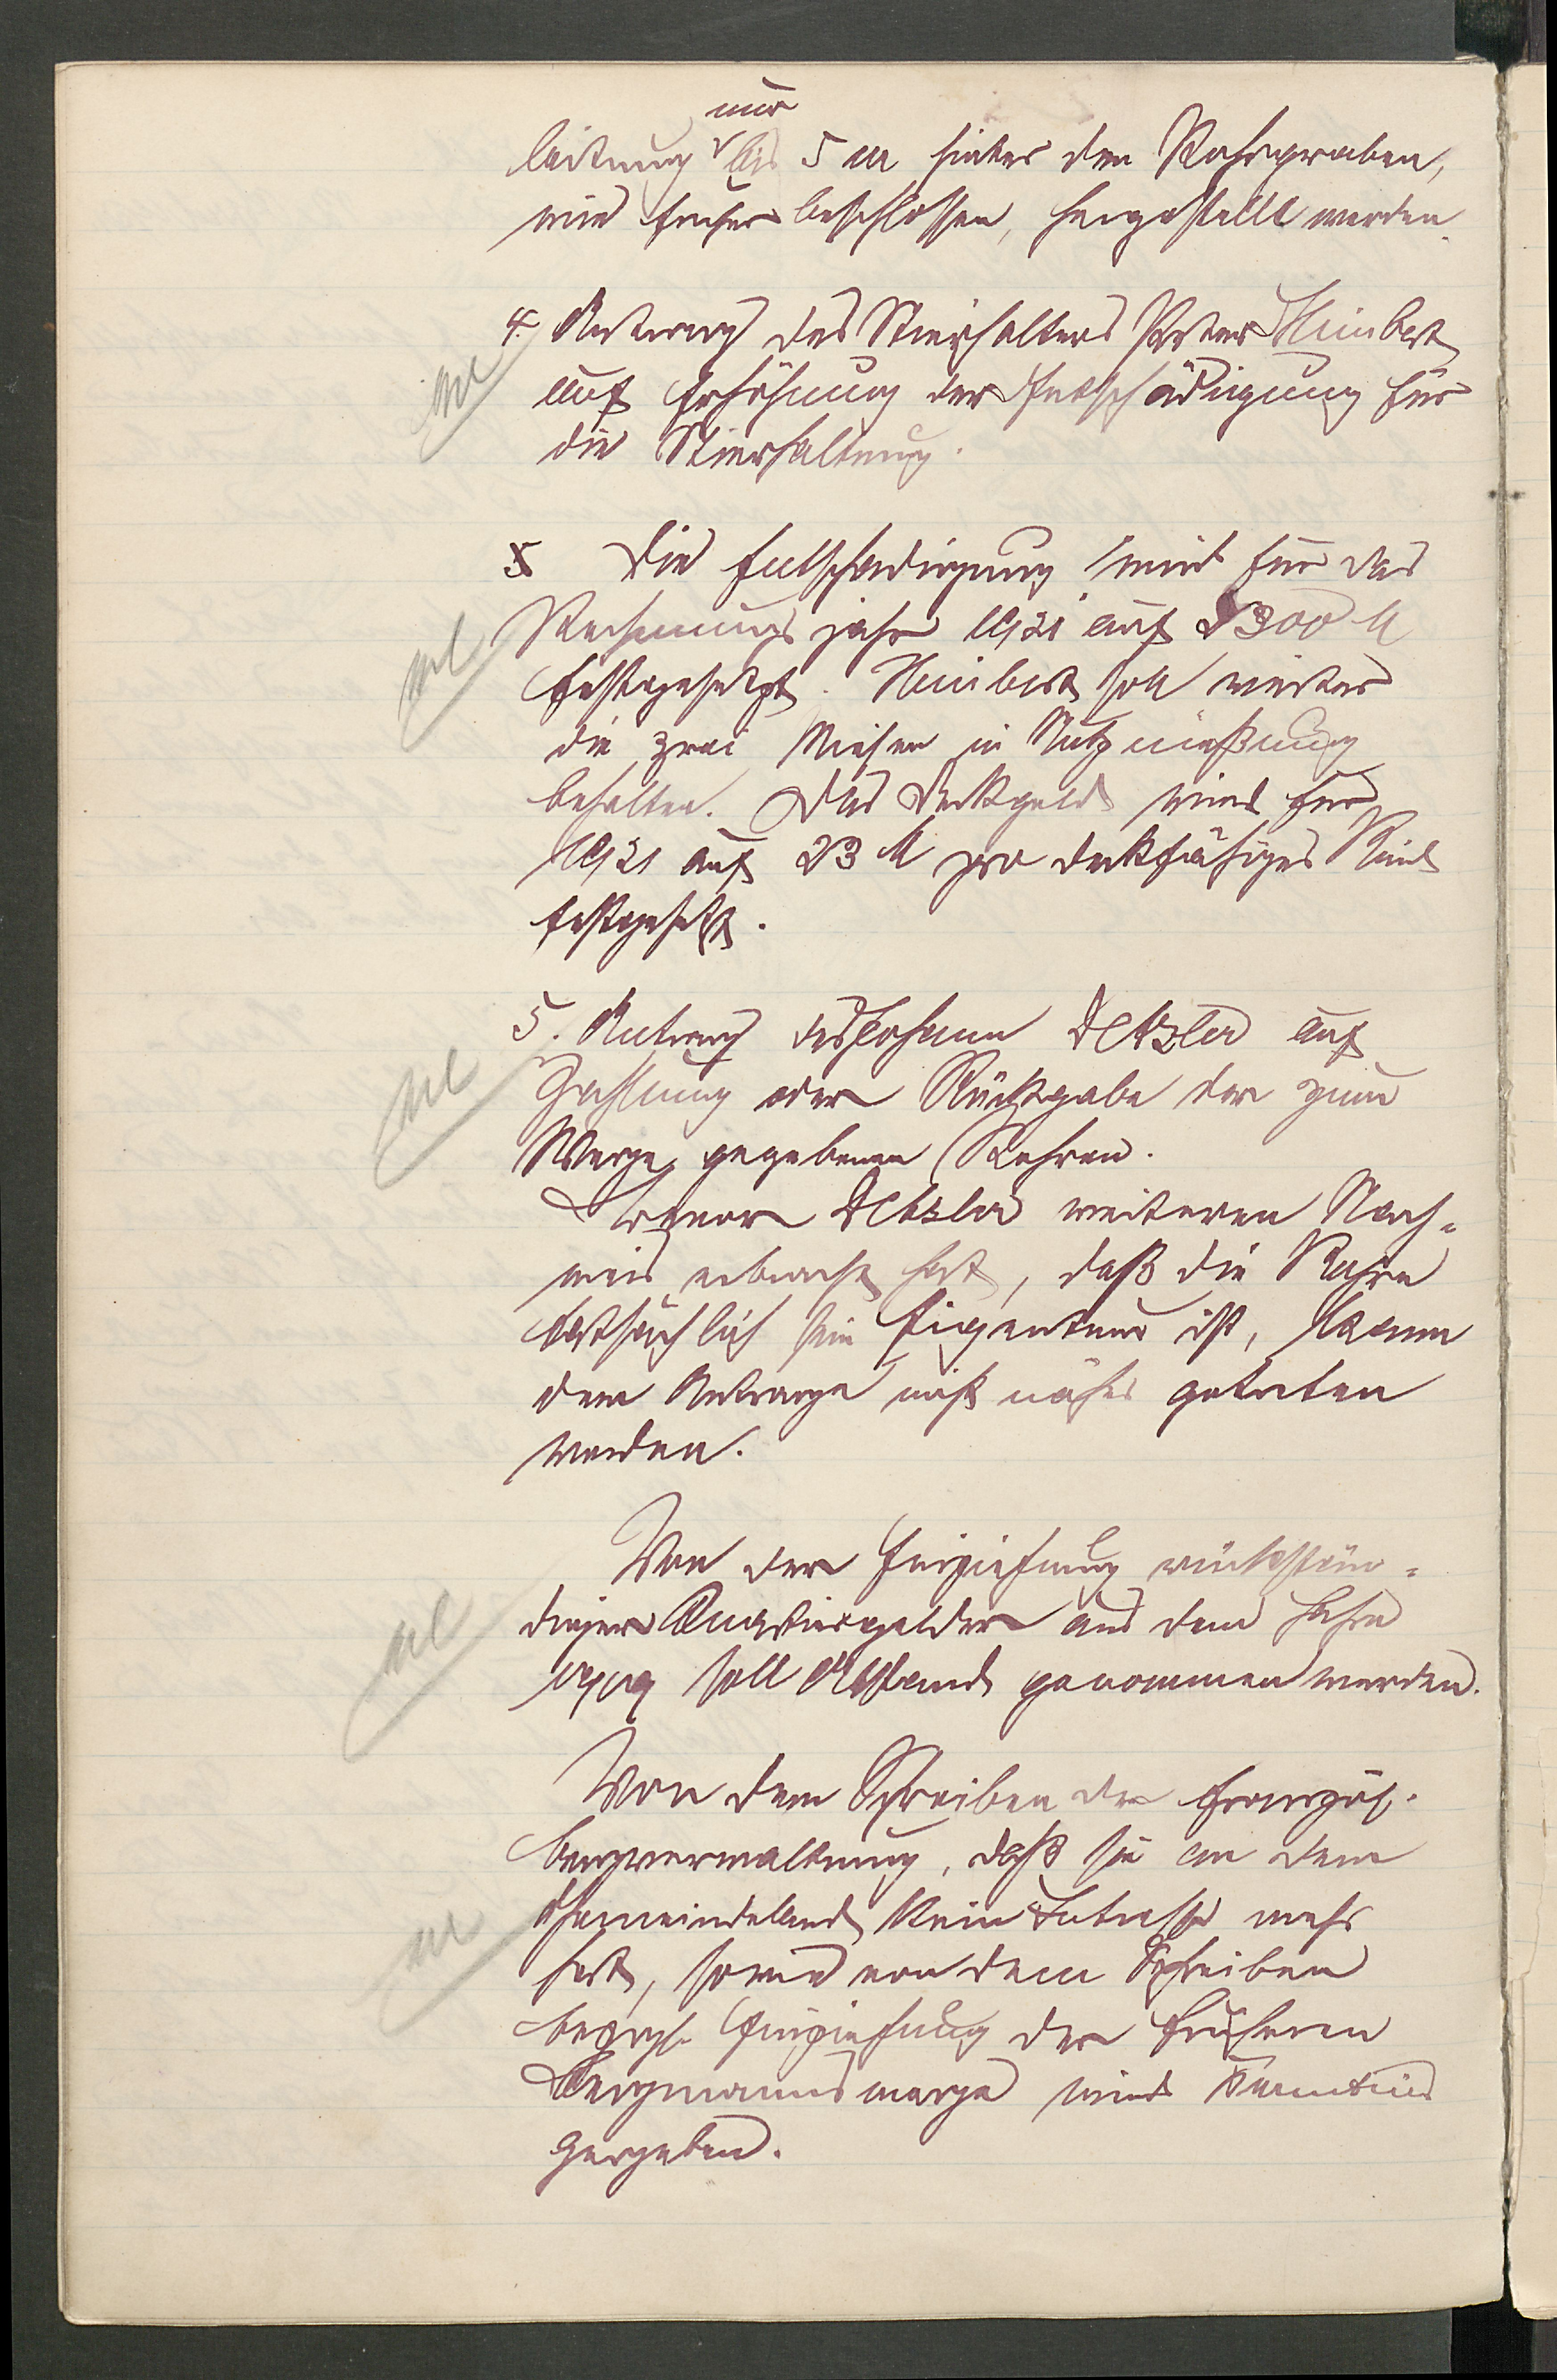 nur
leitung bis 5 m hinter den Rohrgraben,
wie früher beschlossen, hergestellt werden.
4. Antrag des Stierhalters Peter Heinbert
auf Erhöhung der Entschädigung für
die Stierhaltung.
Die Entschädigung wird für das
Rechnungsjahr 1921 auf 5300 M
festgesetzt. Heinbert soll weiter
die zwei Wiesen in Nutznießung
behalten. Das Deckgeld wird für
1921 auf 23 M pro deckfähiges Rind
festgesetzt.
5. Antrag des Johann Detzler auf
Zahlung oder Rückgabe der zum
Wege gegebenen Rohren.
Bevor Detzler weiteren Nach=
weis erbracht hat, daß die Rohre
tatsächlich sein Eigentum ist, kann
dem Antrage nicht näher getreten
werden.
Von der Einziehung rückstän=
diger Quartiergelder aus dem Jahre
1919 soll Abstand genommen werden.
Von dem Schreiben der französ.
Bergverwaltung, daß sie an dem
Gemeindeland kein Intresse mehr
hat, sowie von dem Schreiben
bezügl. Einziehung der früheren
Bergmannswege wird Kenntnis
gegeben.